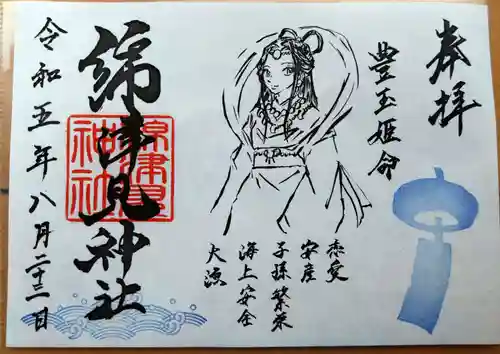 奉拝
豊玉姫命
恋愛
安産
子孫繁栄
海上安全
大漁
綿津見神社
綿津見神社
令和五年八月二十三日